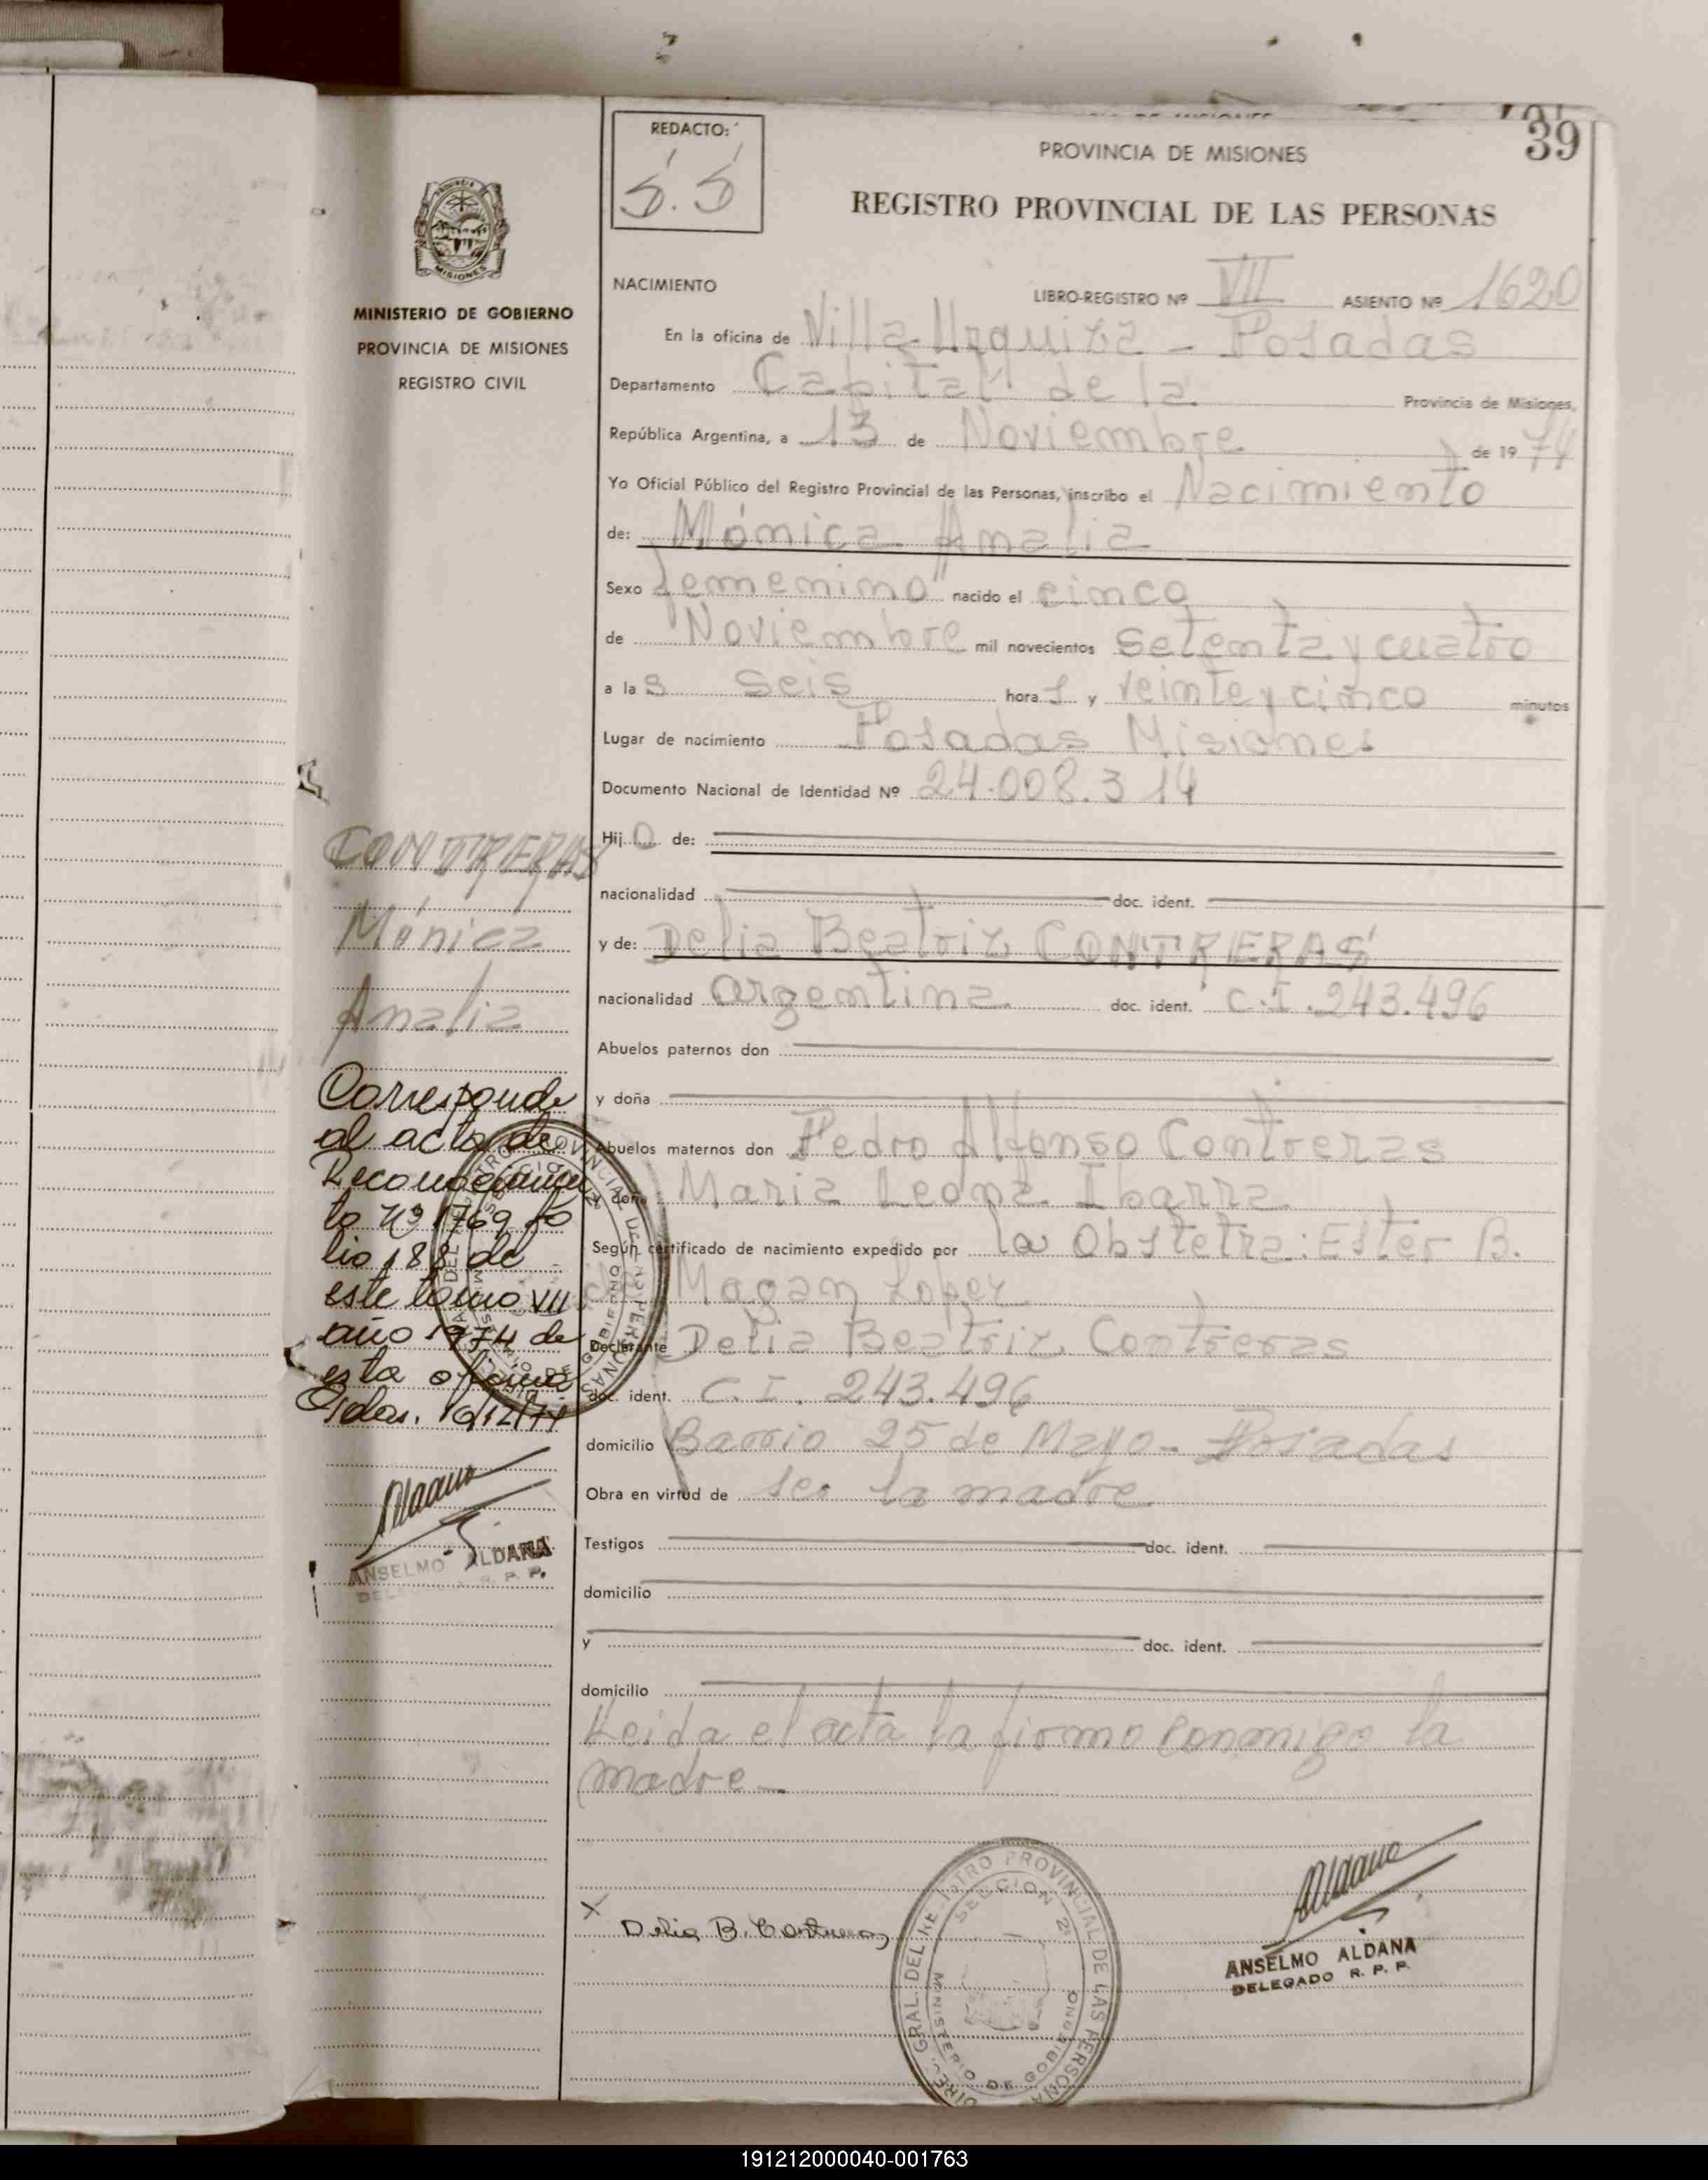 39
REDACTO:
S. S
PROVINCIA DE MISIONES
REGISTRO PROVINCIAL DE LAS PERSONAS
MISIONES
MINISTERIO DE GOBIERNO
PROVINCIA DE MISIONES
REGISTRO CIVIL
NACIMIENTO
LIBRO-REGISTRO Nº VII ASIENTO Nº 1620
En la oficina de Villa Urquiza - Posadas
Departamento Capital de la Provincia de Misiones,
República Argentina, a 13 de Noviembre de 1974
Yo Oficial Público del Registro Provincial de las Personas, inscribo el Nacimiento
de: Mónica Amalia
Sexo femenino nacido el cinco
de Noviembre mil novecientos setenta y cuatro
a las seis horas y veinte y cinco minutos
Lugar de nacimiento Posadas Misiones
Documento Nacional de Identidad Nº 24.008.314
Hijo de:
nacionalidad doc. ident.
y de: Delia Beatriz CONTRERAS
nacionalidad argentina doc. ident. C.I. 243.496
Abuelos paternos don
y doña
Abuelos maternos don Pedro Alfonso Contreras
y doña Maria Leona Ibarra
Según certificado de nacimiento expedido por la Obstetra: Ester B.
de Magan Lopez
Declarante Delia Beatriz Contreras
doc. ident. C.I. 243.496
domicilio Barrio 25 de Mayo - Posadas
Obra en virtud de ser la madre
Testigos doc. ident.
domicilio
y doc. ident.
domicilio
Leida el acta la firmo conmigo la
madre -
CONTRERAS
Mónica
Amalia
Corresponde
al acta de
Reconocimien
to Nº 1769 fo
lio 188 de
este tomo VII
año 1974 de
esta oficina
Pdas. 10/12/74
Aldana
ANSELMO ALDANA
DELEGADO R. P. P.
X Delia B. Contreras
DIREC. GRAL. DEL REGISTRO PROVINCIAL DE LAS PERSONAS
SECCION 2ª
MINISTERIO DE GOBIERNO
Aldana
ANSELMO ALDANA
DELEGADO R. P. P.
191212000040-001763